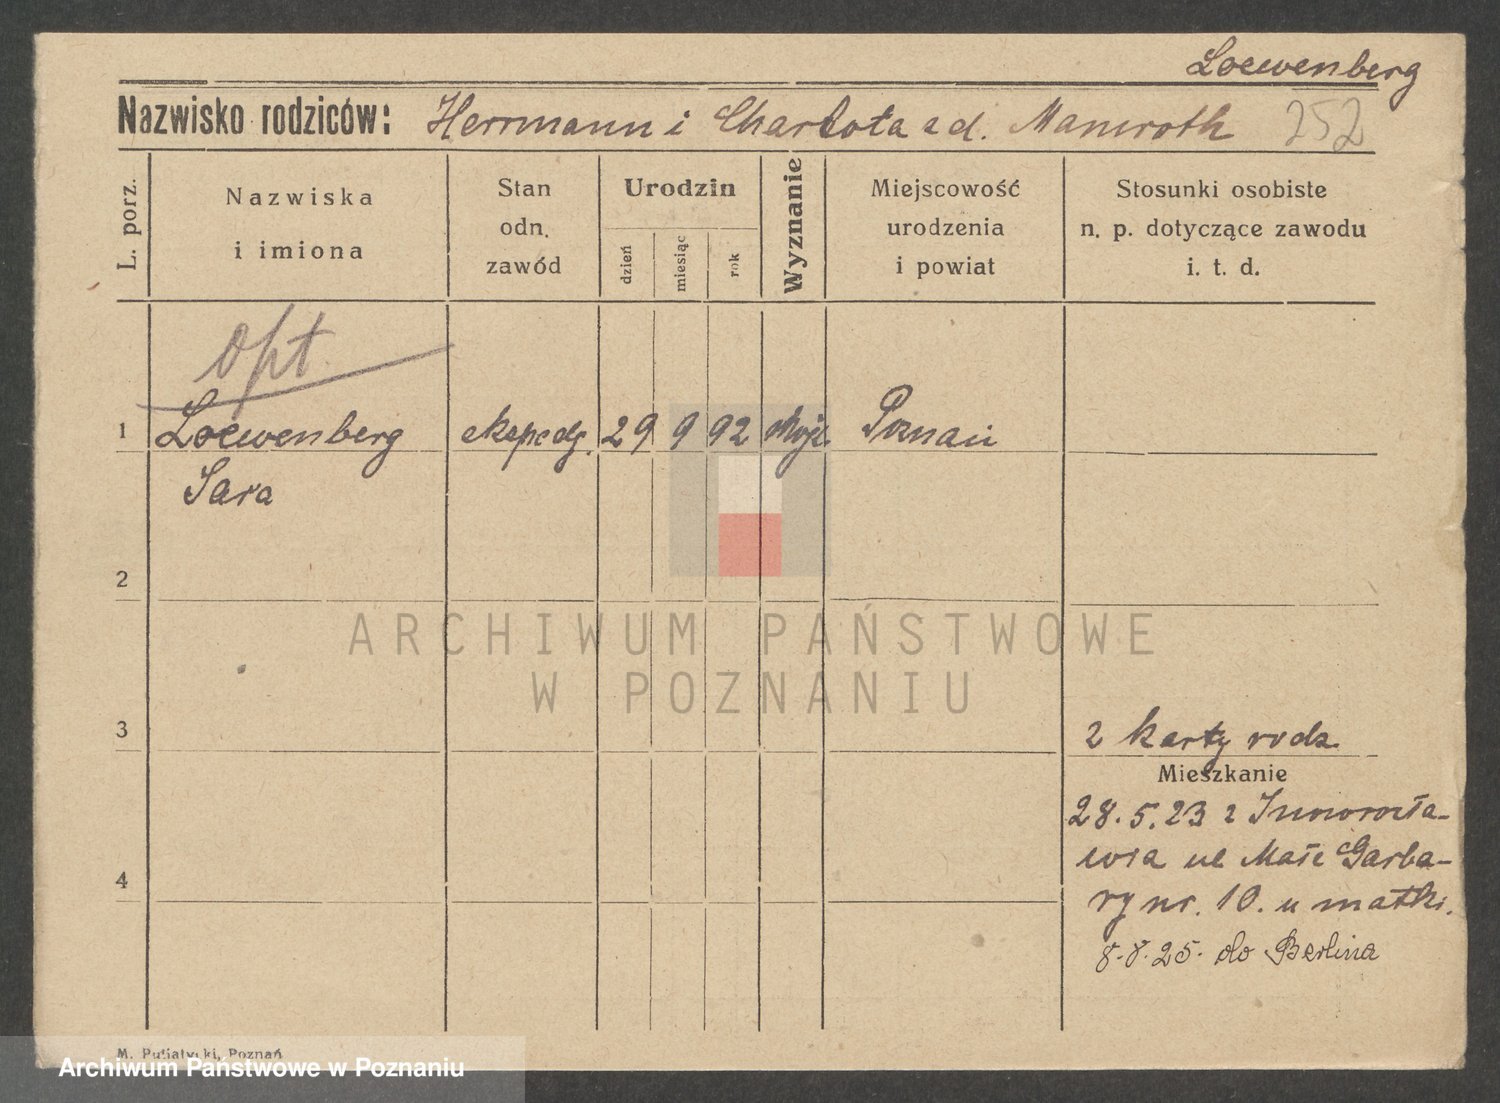 Loewenberg
Nazwisko rodziców: Herrmann i Charlota z d. Mamroth 252
L. porz.
Nazwiska
i imiona
Stan
odn.
zawód
Urodzin
dzień
miesiąc
rok
Wyznanie
Miejscowość
urodzenia
i powiat
Stosunki osobiste
n. p. dotyczące zawodu
i. t. d.
opt
1 Loewenberg ekspedj. 29 9 92 Mojż. Poznań
Sara
2
ARCHIWUM PAŃSTWOWE
W POZNANIU
3
2 karty rodz.
Mieszkanie
28.5.23 z Inowrocła-
wia ul Małe Garba-
4
ry nr. 10. u matki.
8-8.25. do Berlina
M. Putiatycki, Poznań
Archiwum Państwowe w Poznaniu